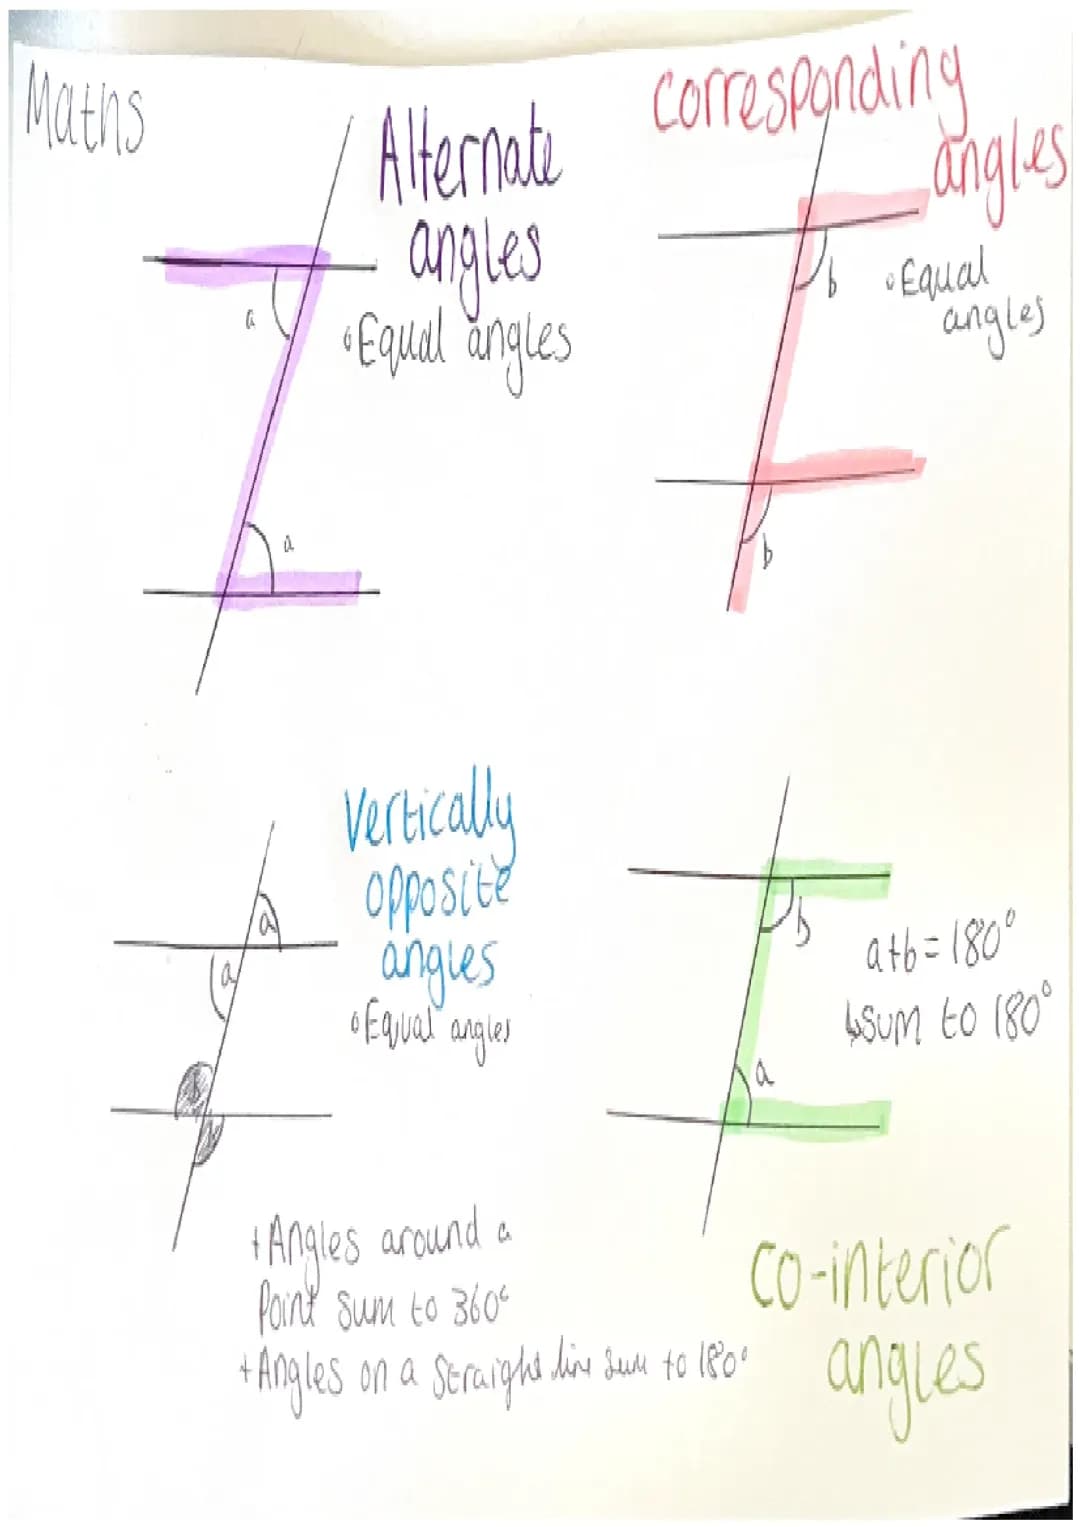 Maths
Alternate
angles
• Equal angles
a
a
Corresponding
angles
• Equal
angles
b
b
Vertically
opposite
angles
• Equal angles
a
a
b
a+b=180°
↳sum to 180°
b
a
Co-interior
angles
+Angles around a
Point sum to 360°
+Angles on a straight line sum to 180°